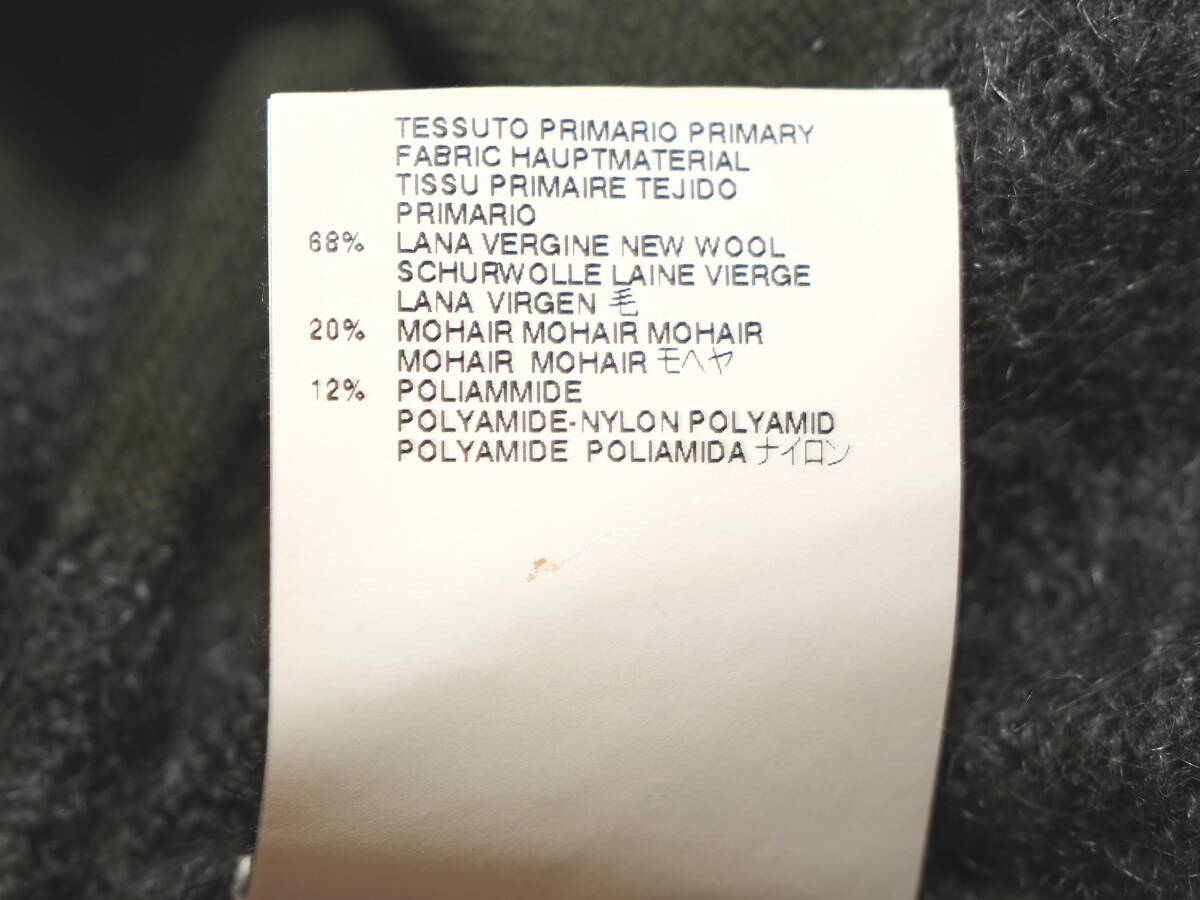 TESSUTO PRIMARIO PRIMARY
FABRIC HAUPTMATERIAL
TISSU PRIMAIRE TEJIDO
PRIMARIO
68% LANA VERGINE NEW WOOL
SCHURWOLLE LAINE VIERGE
LANA VIRGEN 毛
20% MOHAIR MOHAIR MOHAIR
MOHAIR MOHAIR モヘヤ
12% POLIAMMIDE
POLYAMIDE-NYLON POLYAMID
POLYAMIDE POLIAMIDA ナイロン